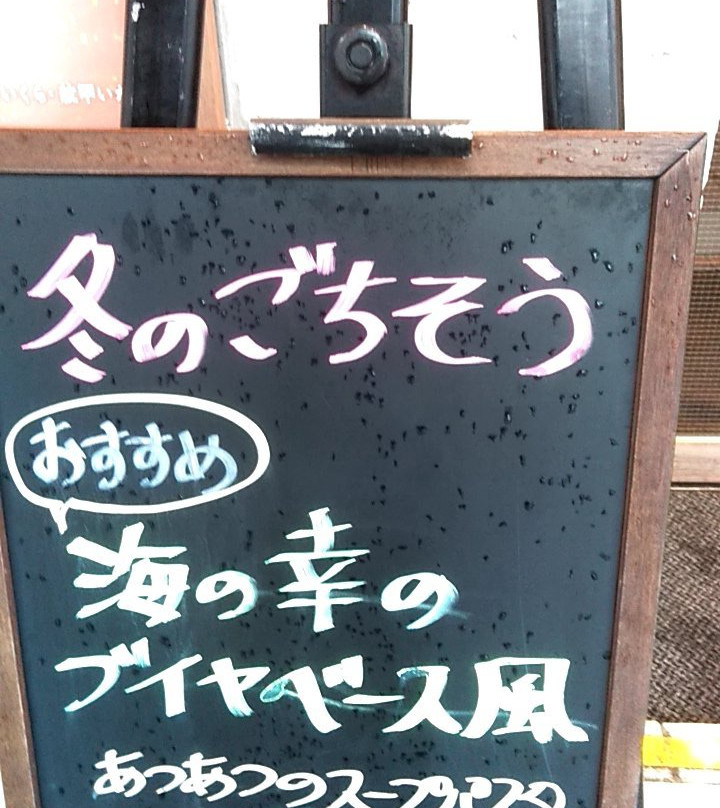 冬のごちそう
おすすめ
海の幸の
ブイヤベース風
あつあつのスープパスタ